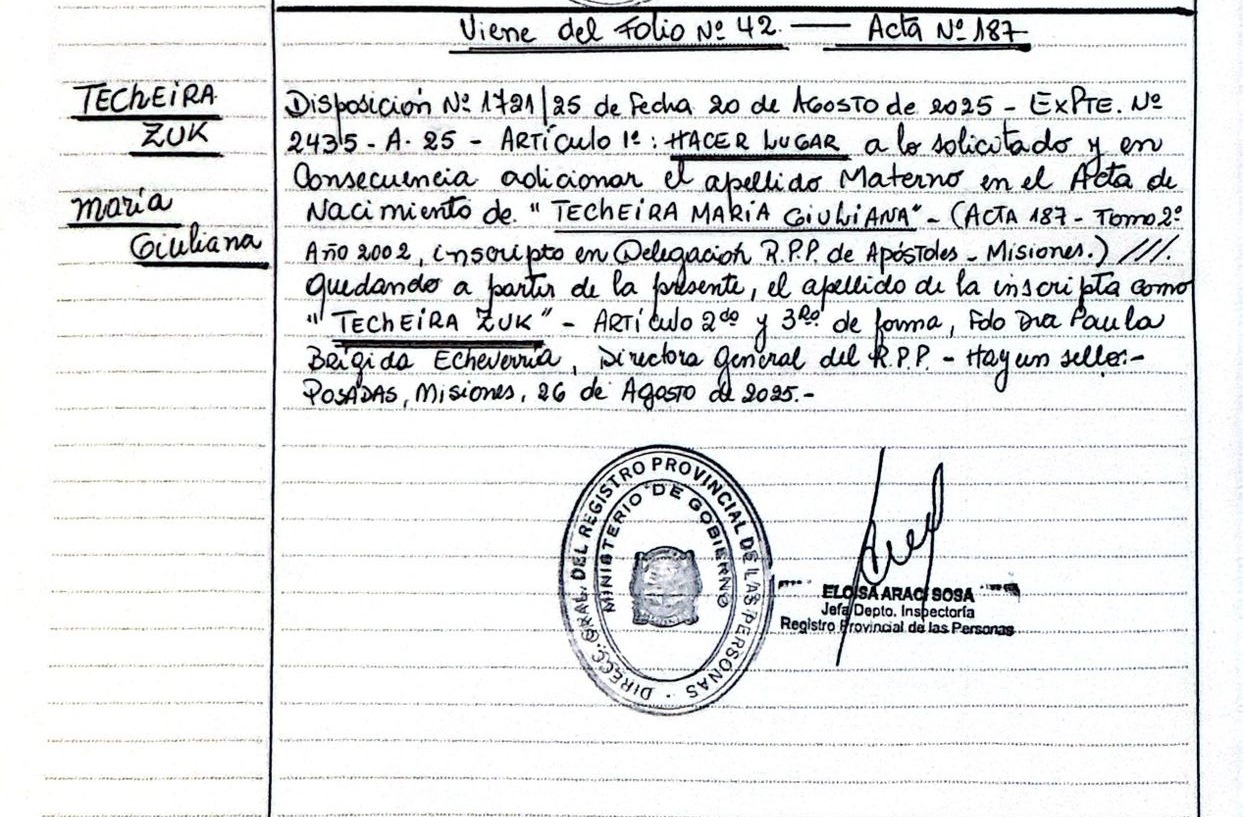 Viene del Folio Nº 42. — Acta Nº 187
TECHEIRA
ZUK
María
Giuliana
Disposición Nº 1721/25 de Fecha 20 de Agosto de 2025 - ExPTE. Nº
2435 - A. 25 - ARTÍCULO 1º: HACER LUGAR a lo solicitado y en
Consecuencia adicionar el apellido Materno en el Acta de
Nacimiento de "TECHEIRA MARÍA GIULIANA" - (ACTA 187 - Tomo 2º
Año 2002, inscripto en Delegación R.P.P. de Apóstoles - Misiones.) ///.
quedando a partir de la presente, el apellido de la inscripta como
"TECHEIRA ZUK" - ARTÍculo 2do y 3Ro de forma, Fdo Dra Paula
Brígida Echeverría, Directora General del R.P.P. - Hay un sello.-
POSADAS, Misiones, 26 de Agosto de 2025.-
DIRECC. GRAL. DEL REGISTRO PROVINCIAL DE LAS PERSONAS
MINISTERIO DE GOBIERNO
ELOISA ARACI SOSA
Jefa Depto. Inspectoría
Registro Provincial de las Personas